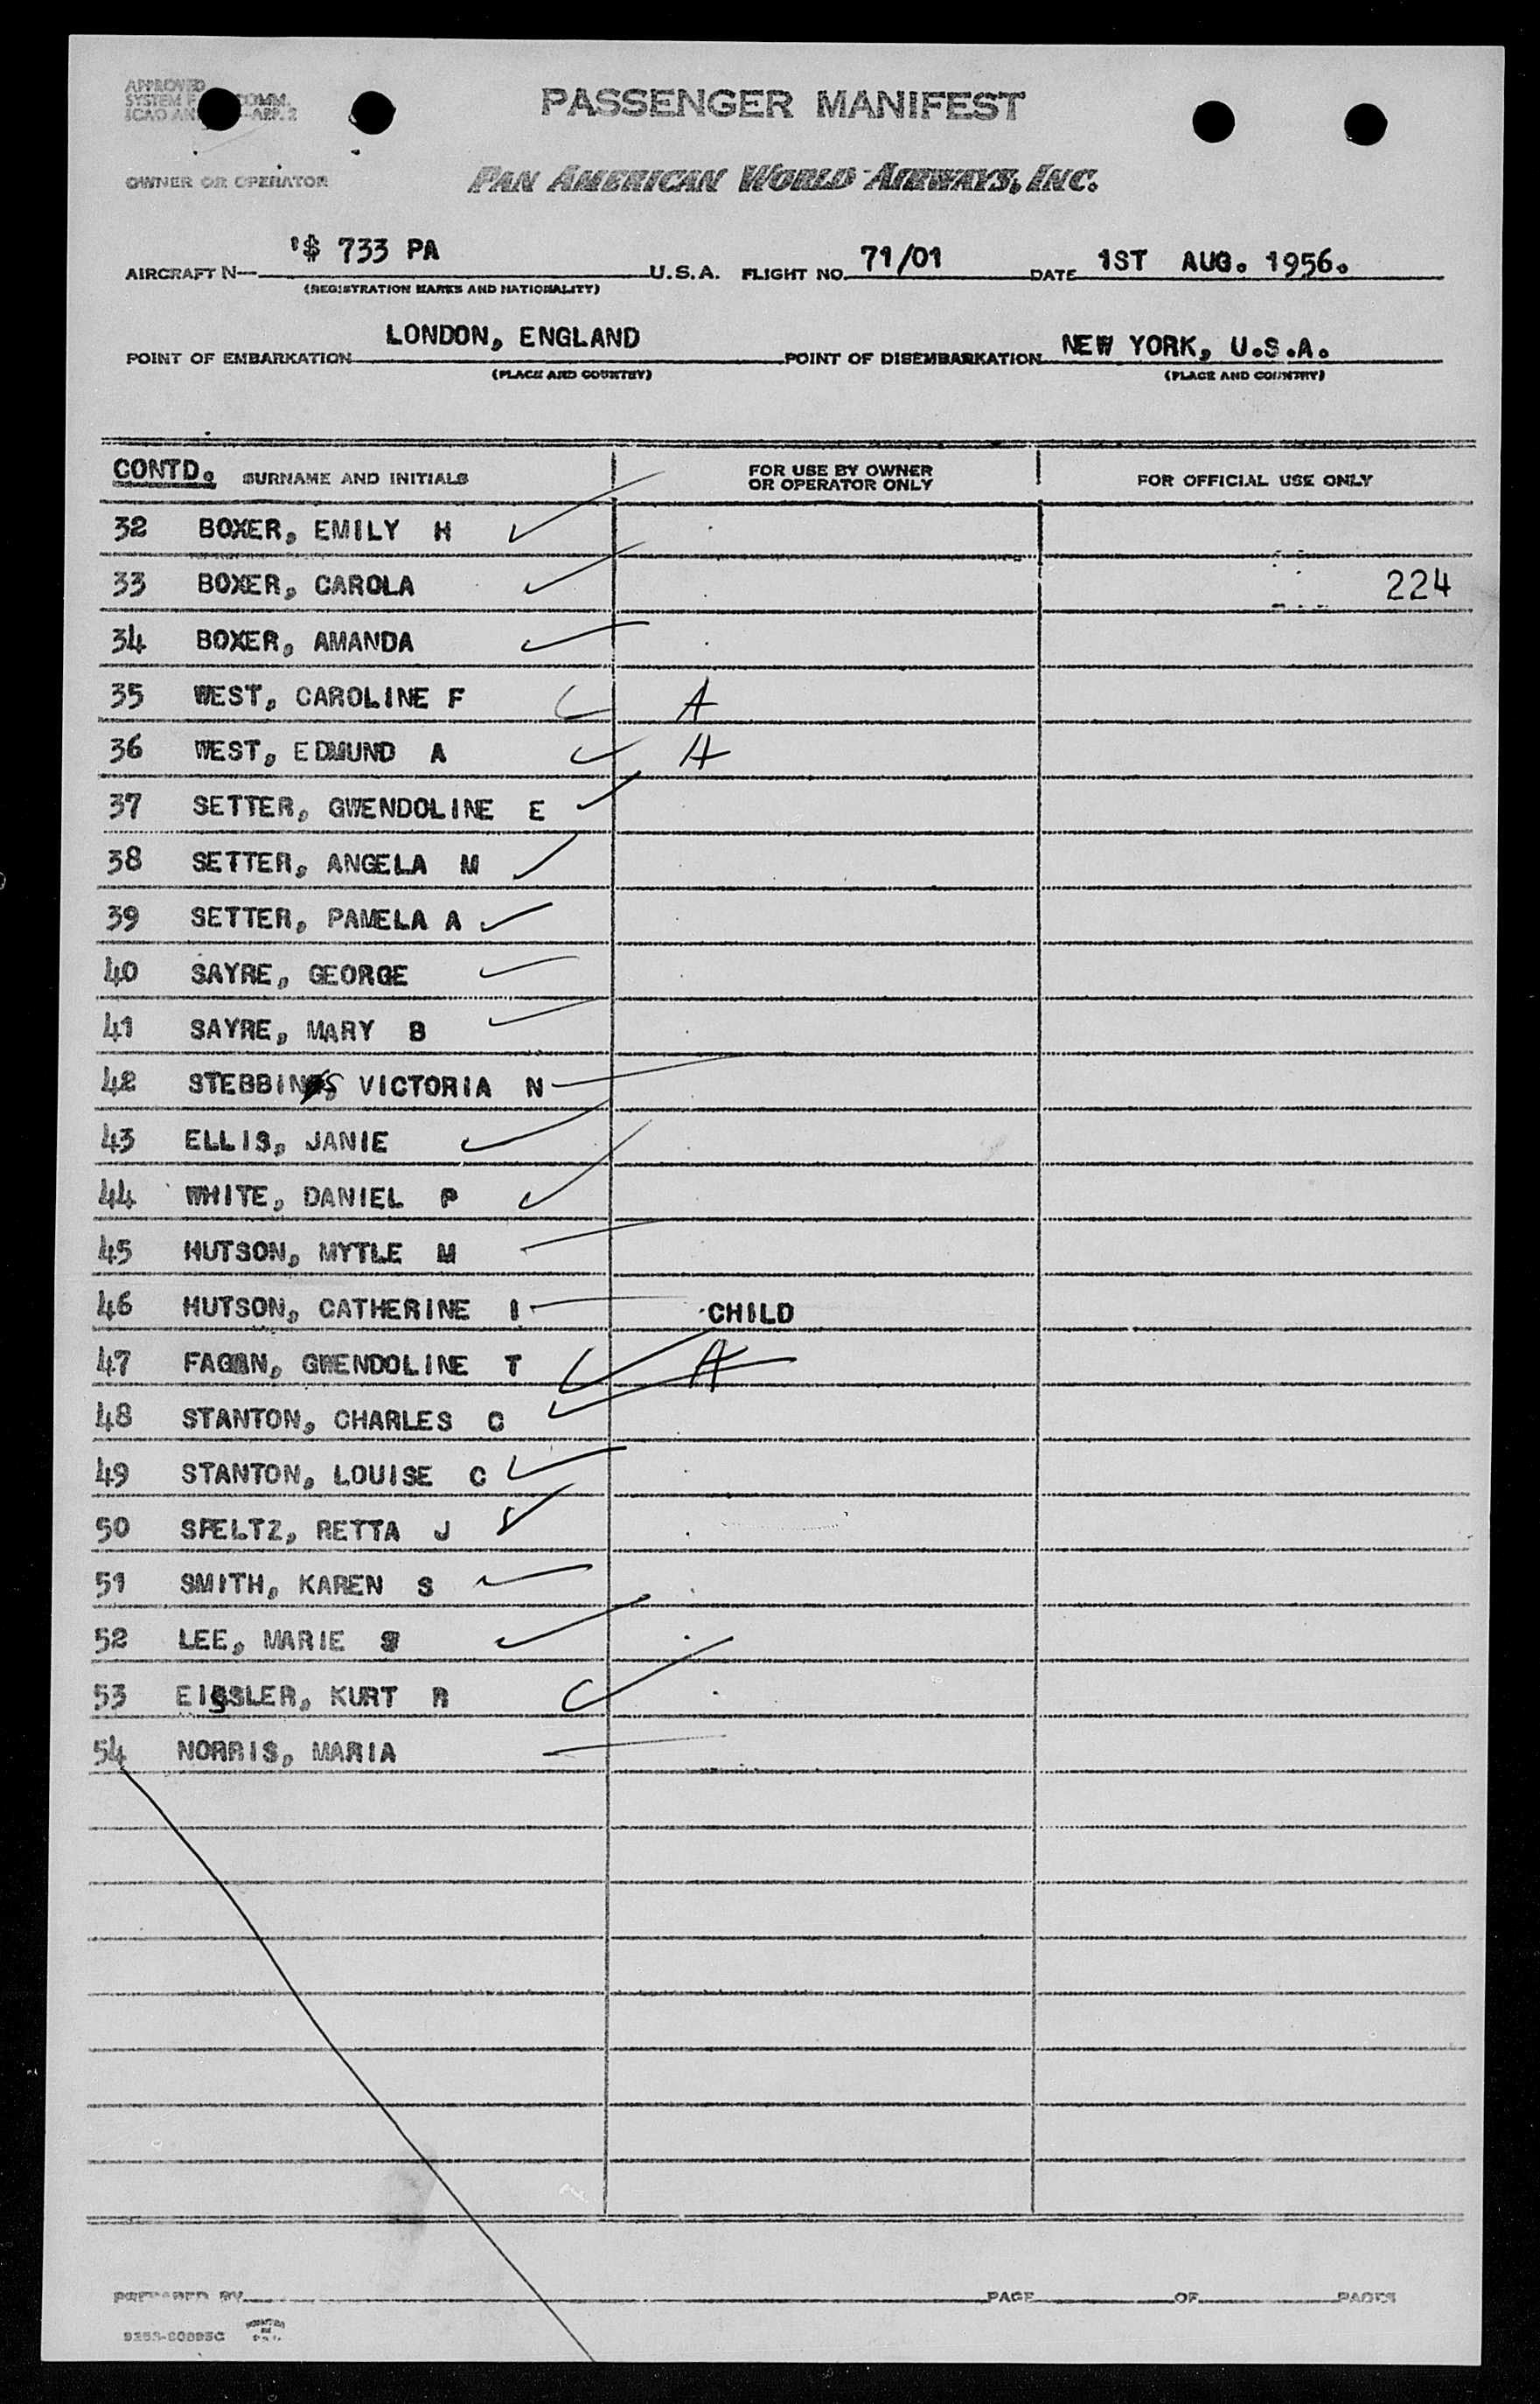 APPROVED
SYSTEM COMM.
ICAO AN -APP. 2
PASSENGER MANIFEST
OWNER OR OPERATOR
PAN AMERICAN WORLD AIRWAYS, INC.
AIRCRAFT N- '$ 733 PA U.S.A. FLIGHT NO. 71/01 DATE 1ST AUG. 1956.
(REGISTRATION MARKS AND NATIONALITY)
POINT OF EMBARKATION LONDON, ENGLAND POINT OF DISEMBARKATION NEW YORK, U.S.A.
(PLACE AND COUNTRY) (PLACE AND COUNTRY)
CONTD. SURNAME AND INITIALS FOR USE BY OWNER OR OPERATOR ONLY FOR OFFICIAL USE ONLY
32 BOXER, EMILY H
33 BOXER, CAROLA 224
34 BOXER, AMANDA
35 WEST, CAROLINE F A
36 WEST, EDMUND A A
37 SETTER, GWENDOLINE E
38 SETTER, ANGELA M
39 SETTER, PAMELA A
40 SAYRE, GEORGE
41 SAYRE, MARY B
42 STEBBINS, VICTORIA N
43 ELLIS, JANIE
44 WHITE, DANIEL P
45 HUTSON, MYTLE M
46 HUTSON, CATHERINE I CHILD
47 FAGAN, GWENDOLINE T A
48 STANTON, CHARLES C
49 STANTON, LOUISE C
50 SPELTZ, RETTA J
51 SMITH, KAREN S
52 LEE, MARIE
53 EISSLER, KURT R
54 NORRIS, MARIA
PREPARED BY PAGE OF PAGES